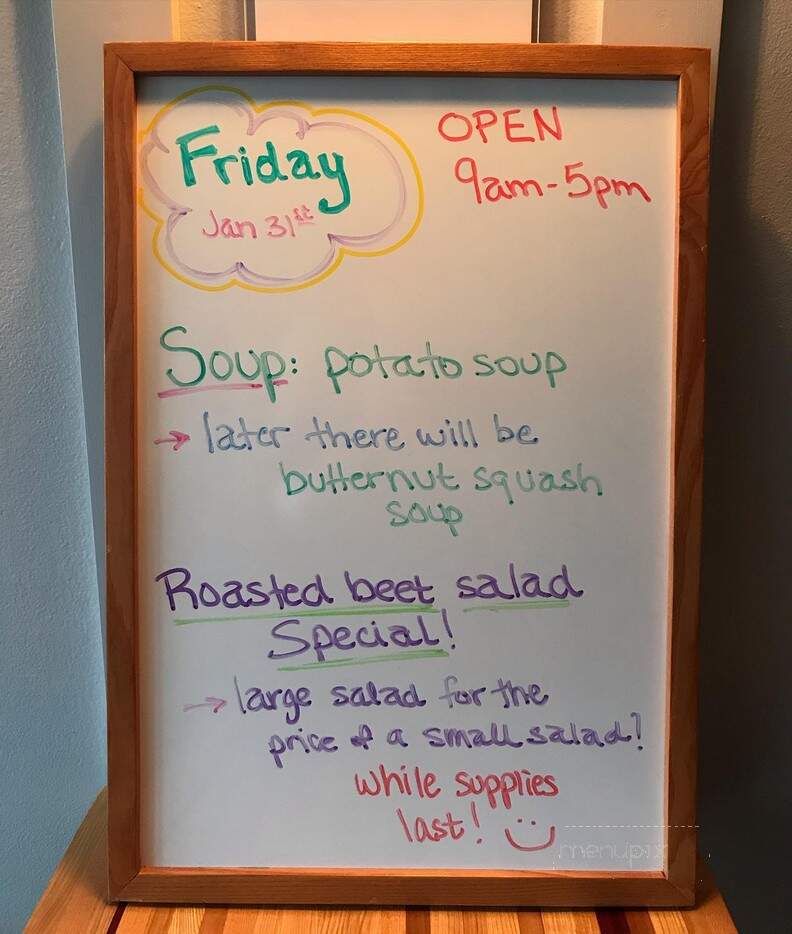 Friday
Jan 31st
OPEN
9am-5pm
Soup: potato soup
→ later there will be
butternut squash
soup
Roasted beet salad
Special!
→ large salad for the
price of a small salad!
while supplies
last!
menupix